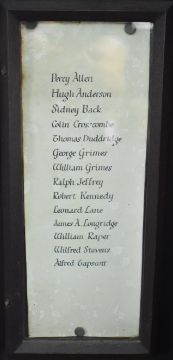 Percy Allen
Hugh Anderson
Sidney Back
Colin Crosscombe
Thomas Duddridge
George Grimes
William Grimes
Ralph Jeffrey
Robert Kennedy
Leonard Lane
James A. Longridge
William Raper
Wilfred Stevens
Alfred